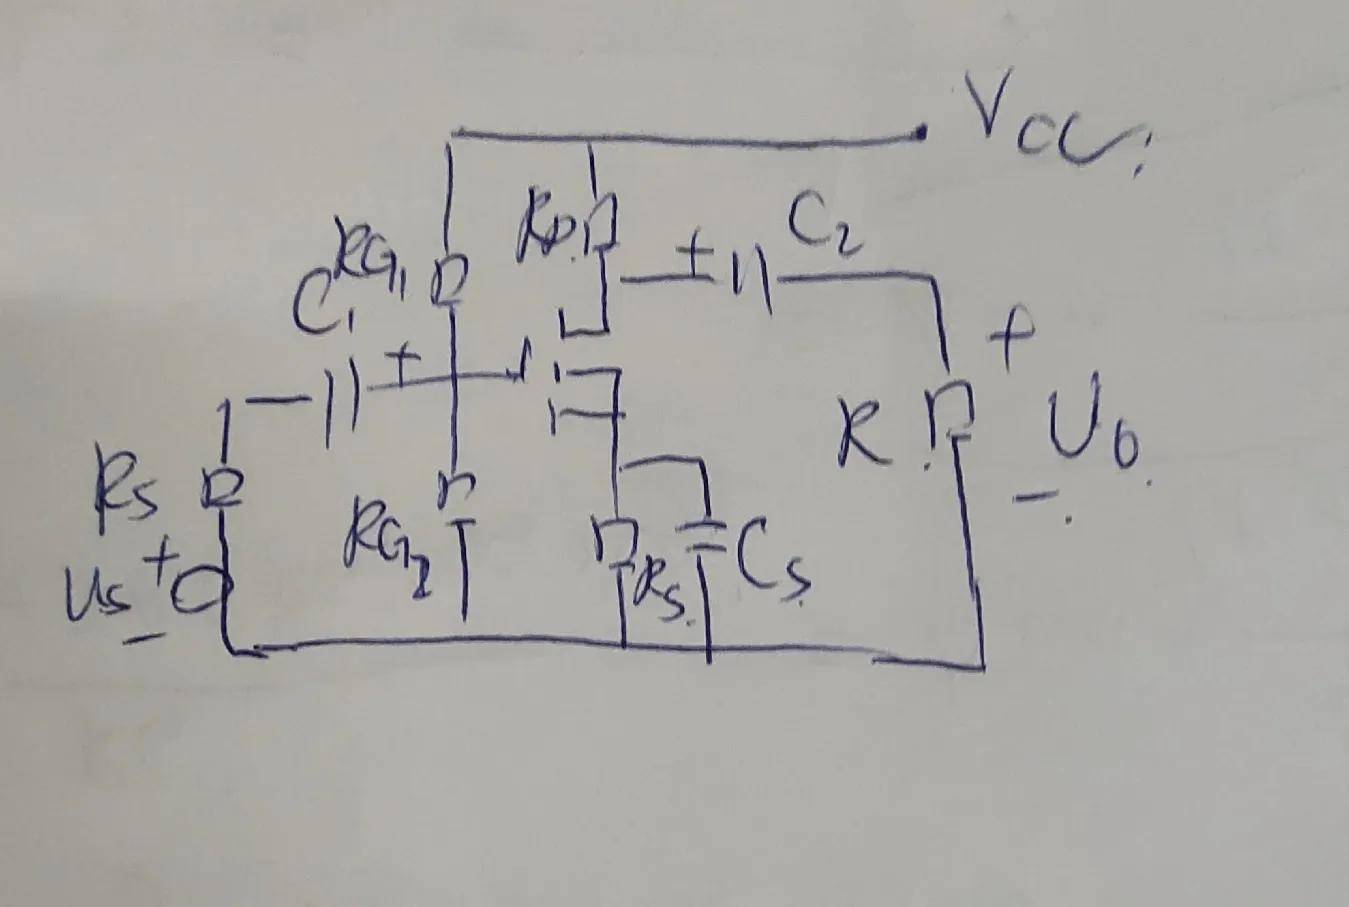 Vcc
RD
C2
RG1
C1
+
+
+
R
U0
-
Rs
RG2
Us
+
-
Rs
Cs